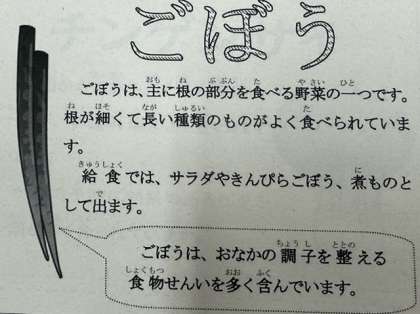 ごぼう
ごぼうは、主に根の部分を食べる野菜の一つです。
根が細くて長い種類のものがよく食べられていま
す。
給食では、サラダやきんぴらごぼう、煮ものと
して出ます。
ごぼうは、おなかの調子を整える
食物せんいを多く含んでいます。